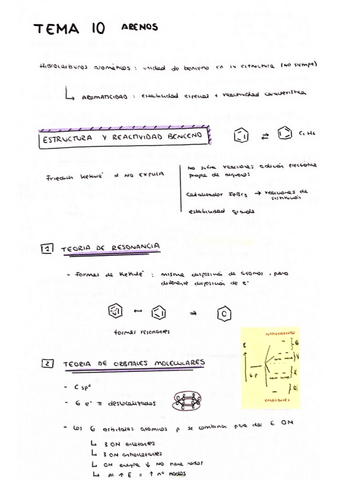 TEMA 10 ARENOS
Hidrocarburos aromáticos : unidad de benceno en su estructura (no siempre)
↳ AROMATICIDAD : estabilidad especial + reactividad característica
ESTRUCTURA Y REACTIVIDAD BENCENO
⇌ C6H6
Friedrich Kekulé NO EXPLICA
No sufre reacciones adición electrófila
propia de alquenos
Catalizador FeBr3 → reacciones de
sustitución
estabilidad grande
1 TEORIA DE RESONANCIA
- formas de Kekulé : misma disposición de átomos, pero
diferente disposición de e-
formas resonantes
2 TEORIA DE ORBITALES MOLECULARES
- C sp2
- 6 e- π deslocalizados
- Los 6 orbitales atómicos p se combinan para dar 6 OM
↳ 3 OM enlazantes
↳ 3 OM antienlazantes
↳ OM energía ↓ no tiene nodos
↳ Al ↑ E = ↑ nº nodos
E
6 p